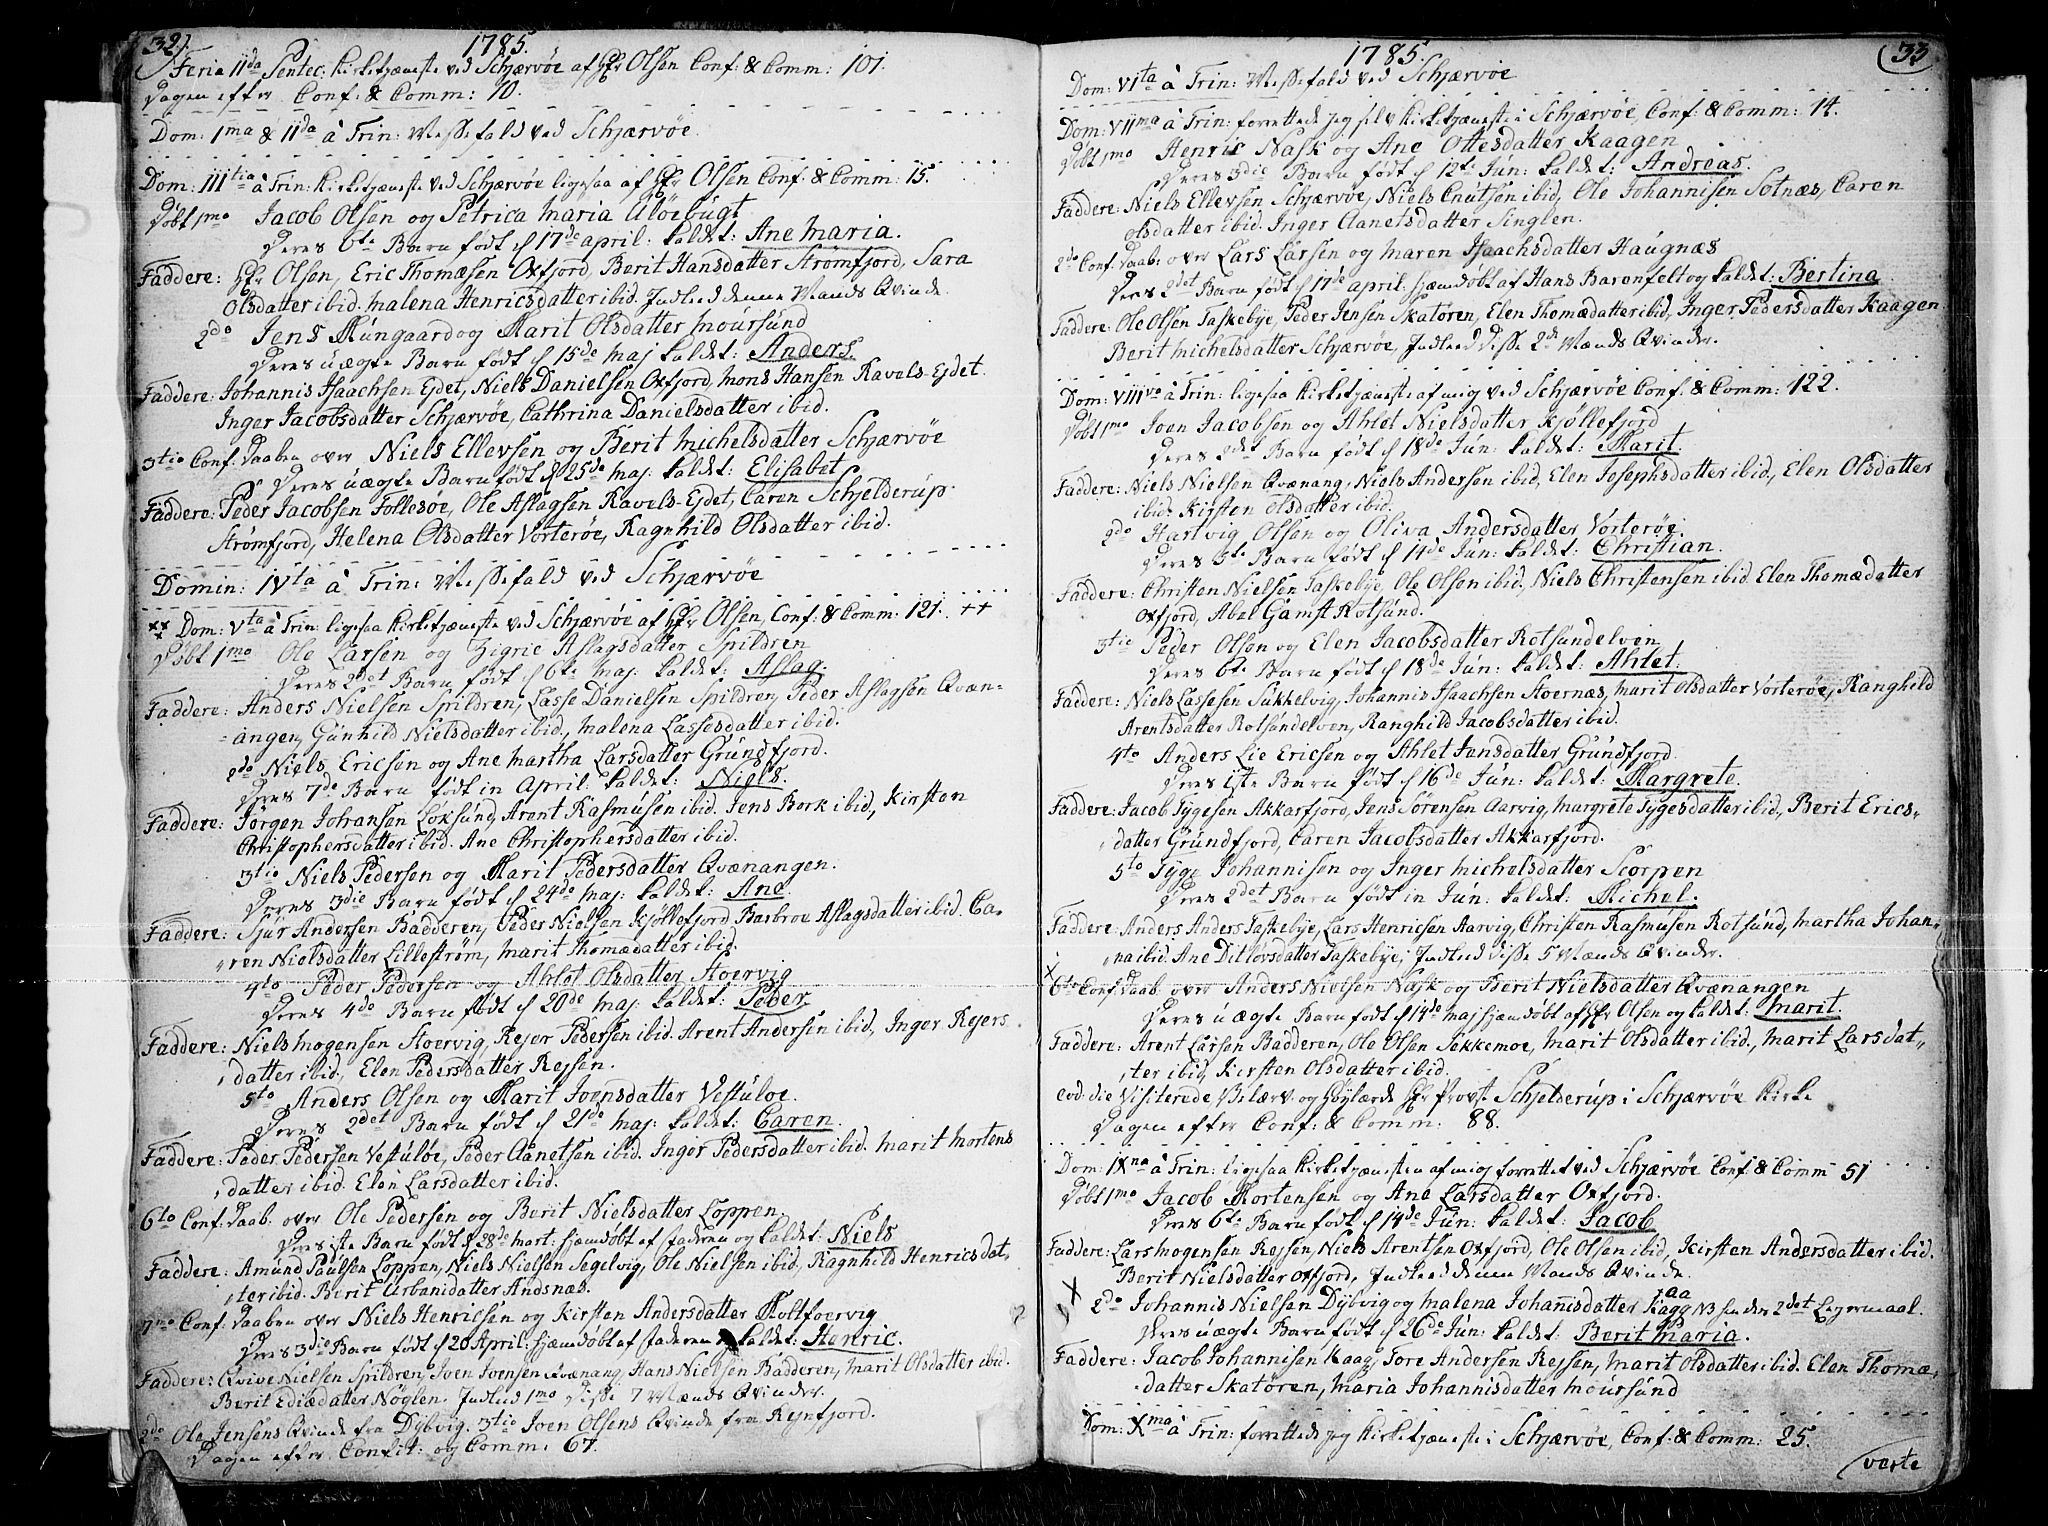 32).
1785.
Feria IIda Pentec: Kirketjæneste ved Schjærvöe af Hr Olsen Conf: & Comm: 101.
Dagen efter Conf: & Comm: 10.
Dom: 1ma & IIda à Trin: Messefald ved Schjærvöe.
Dom: IIItia à Trin: Kirketjæneste ved Schjærvöe ligesaa af Hr Olsen Conf: & Comm: 15.
Döbt 1mo Jacob Olsen og Petrica Maria Alöebugt
Deres 6te Barn födt d 17de April: kaldet: Ane Maria.
Faddere: Hr Olsen, Eric Thomæsen Oxfjord, Berit Hansdatter Strömfjord, Sara
Olsdatter ibid. Malena Henricsdatter ibid. Indleed denne Mands Qvinde.
2do Jens Mungaard og Marit Olsdatter Moursund
Deres uægte Barn födt d 15de Maj kaldet: Anders.
Faddere: Johannis Isaachsen Ejdet, Niels Danielsen Oxfjord, Mons Hansen Ravels-Ejdet.
Inger Jacobsdatter Schjærvöe, Cathrina Danielsdatter ibid.
3tio Conf: Daaben over Niels Ellevsen og Berit Michelsdatter Schjærvöe
Deres uægte Barn födt d 25de Maj: kaldet: Elisabet
Faddere: Peder Jacobsen Follesöe, Ole Aslagsen Ravels-Ejdet, Caren Schjelderup
Strömfjord, Helena Olsdatter Vorteröe, Ragnhild Olsdatter ibid.
Domin: IVta à Trin: Messefald ved Schjærvöe
Dom: Vta à Trin: ligesaa Kirketjæneste ved Schjærvöe af Hr Olsen, Conf: & Comm: 121. ++
Döbt 1mo Ole Larsen og Zigrie Aslagsdatter Spildren
Deres 2det Barn födt d 6te Maj: kaldet: Aslag.
Faddere: Anders Nielsen Spildren, Lasse Danielsen Spildren, Peder Aslagsen Qvæn-
angen, Gunhild Nielsdatter ibid., Malena Lassesdatter ibid.
2do Niels Ericsen og Ane Martha Larsdatter Grundfjord.
Deres 7de Barn födt in April: kaldet: Niels.
Faddere: Jörgen Johansen Loksund, Arent Rasmusen ibid. Jens Bork ibid., Kirsten
Christophersdatter ibid. Ane Christophersdatter ibid.
3tio Niels Pedersen og Marit Pedersdatter Qvænangen.
Deres 3die Barn födt d 24de Maj: kaldet: Ane
Faddere: Sjur Andersen Badderen, Peder Nielsen Kjöllefjord Barbroe Aslagsdatter ibid. Ca-
ren Nielsdatter Lilleström, Marit Thomædatter ibid.
4to Peder Pedersen og Ahlet Olsdatter Stoervig
Deres 4de Barn födt d 20de Maj: kaldet: Peder
Faddere: Niels Mogensen Stoervig, Rejer Pedersen ibid. Arent Andersen ibid, Inger Rejers
datter ibid, Elen Pedersdatter Rejsen.
5to Anders Olsen og Marit Joensdatter Vestuloe.
Deres 2det Barn födt d 21de Maj: kaldet: Caren.
Faddere: Peder Pedersen Vestuloe, Peder Aanetsen ibid. Inger Pedersdatter ibid. Marit Mortens
datter ibid. Elen Larsdatter ibid.
6to Conf: Daab. over Ole Pedersen og Berit Nielsdatter Loppen.
Deres 1ste Barn födt d 28de Mart: hjemdöbt af faderen og kaldet: Niels
Faddere: Amund Paulsen Loppen, Niels Nielsen Segelvig, Ole Nielsen ibid, Ragnhild Henricsdat,
ter ibid. Berit Urbanidatter Andsnæs.
7mo Conf: Daaben over Niels Henricsen og Kirsten Andersdatter Holtfoervig
Deres 3die Barn födt d 20 April: hjemdöbt af faderen og kaldet: Henric.
Faddere: Qvive Nielsen Spildren, Joen Joensen Qvænang, Hans Nielsen Badderen, Marit Olsdatter ibid.
Berit Ediædatter Nöglen. Indleed 1mo Disse 7 Mænds Qvinder.
2do Ole Jensens Qvinde fra Dybvig. 3tio Joen Olsens Qvinde fra Rejnfjord.
Dagen efter Confit: og Comm: 67.
33
1785.
Dom: VIta à Trin: Messefald ved Schjærvöe
Dom: VIIma à Trin: forrettede jeg selv Kirketjæneste i Schjærvöe Conf: & Comm: 14.
Döbt 1mo Henric Nask og Ane Ottesdatter Kaagen
Deres 3die Barn födt d 12te Jun: kaldet: Andreas.
Faddere: Niels Ellevsen Schjærvöe, Niels Cnutsen ibid, Ole Johannisen Sotnæs, Caren
Olsdatter ibid. Inger Aanetsdatter Singlen.
2do Conf: Daab: over Lars Larsen og Maren Isaachsdatter Haugnæs
Deres 2det Barn födt d 17de April: hjemdöbt af Hans Barenfelt og kaldet: Bertina
Faddere: Ole Olsen Taskebye, Peder Jensen Skatören, Elen Thomædatter ibid, Inger Pedersdatter Kaagen
Berit Michelsdatter Schjærvöe, Indleed disse 2de Mænds Qvinder.
Dom: VIIIva à Trin: ligesaa Kirketjæneste af mig ved Schjærvöe Conf: & Comm: 122.
Döbt 1mo Joen Jacobsen og Ahlet Nielsdatter Kjöllefjord
Deres 2det Barn födt d 18de Jun: kaldet: Marit.
Faddere: Niels Nielsen Qvænang, Niels Andersen ibid, Elen Josephsdatter ibid., Elen Olsdatter
ibid. Kirsten Olsdatter ibid.
2do Hartvig Olsen og Oliva Andersdatter Vorteröe.
Deres 5te Barn födt d 11de Jun: kaldet: Christian.
Faddere: Christen Nielsen Taskebye, Ole Olsen ibid. Niels Christensen ibid. Elen Thomædatter
Oxfjord, Abel Gamst Rotsund.
3tio Peder Olsen og Elen Jacobsdatter Rotsundelven
Deres 6te Barn födt d 18de Jun: kaldet: Ahlet.
Faddere: Niels Lassesen Sukkelvig, Johannis Isaachsen Stoernæs, Marit Olsdatter Vorteröe, Ranghild
Arentsdatter Rotsundelven, Ranghild Jacobsdatter ibid.
4to Anders Lie Ericsen og Ahlet Jansdatter Grundfjord.
Deres 1ste Barn födt d 16de Jun: kaldet: Margrete.
Faddere: Jacob Tygesen Akkarfjord, Jens Sörensen Aarvig, Margrete Tygesdatter ibid., Berit Erics-
datter Grundfjord, Caren Jacobsdatter Akkarfjord.
5to Tyge Johannisen og Inger Michelsdatter Scorpen
Deres 2det Barn födt in Jun: kaldet: Michel.
Faddere: Anders Anders Taskebye, Lars Henricsen Aarvig, Christen Rasmusen Rotsund, Martha Johan-
na ibid. Ane Ditlovsdatter Taskebye, Indleed disse 5 Mænds Qvinder.
X
6to Conf: Daab over Anders Nielsen Nask og Berit Nielsdatter Qvænangen
Deres uægte Barn födt d 14de Maj hjemdöbt af Hr Olsen og kaldet: Marit.
Faddere: Arent Larsen Badderen, Ole Olsen Sekkemoe, Marit Olsdatter ibid., Marit Larsdat-
ter ibid, Kirsten Olsdatter ibid.
eod: die Visiterede Velærv. og Höylærde Hr Provst Schjelderup i Schjærvöe Kirke
Dagen efter Conf: & Comm: 88.
Dom: IXna à Trin: ligesaa Kirketjænesten af mig forrettet ved Schjærvöe Conf: & Comm 51
Döbt 1mo Jacob Mortensen og Ane Larsdatter Oxfjord.
Deres 6te Barn födt d 14de Jun: kaldet: Jacob
Faddere: Lars Mogensen Rejsen, Niels Arentsen Oxfjord, Ole Olsen ibid, Kirsten Andersdatter ibid.
Berit Nielsdatter Oxfjord, Indleed denne Mands Qvinde.
X
2do Johannis Nielsen Dybvig og Malena Johanisdatter Kaag NB hendes 2det Lejermaal.
Deres uægte Barn födt d 26de Jun: kaldet: Berit Maria.
Faddere: Jacob Johannisen Kaag, Tore Andersen Rejsen, Marit Olsdatter ibid. Elen Thomæ,
datter Skatören, Maria Johannisdatter Moursund
Dom: Xma à Trin: forrettede jeg Kirketjæneste i Schjærvöe, Conf: & Comm: 25.
verte